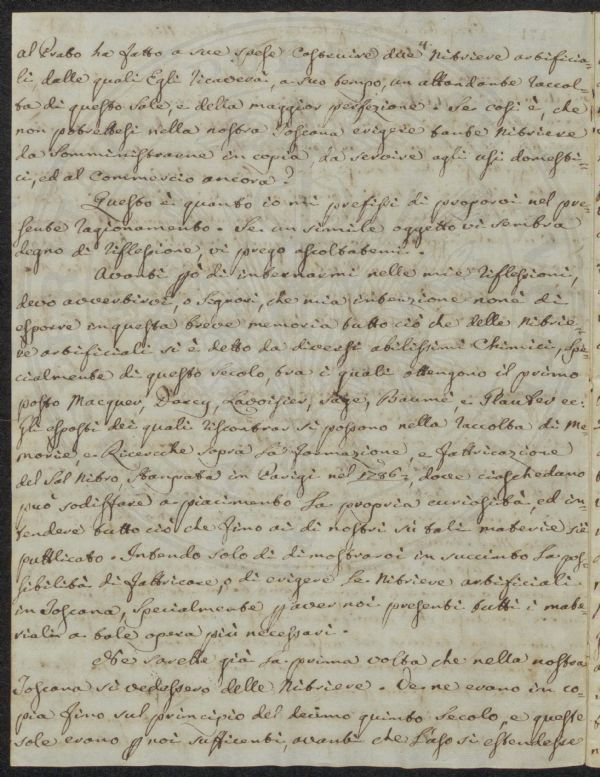 al Prato ha fatto a sue spese costruire due Nitriere artificia=
li, dalle quali Egli ricaverà, a suo tempo, un abbondante raccol=
ta di questo sale, e della maggior perfezione: Se così è, che
non potrebbesi nella nostra Toscana erigere tante Nitriere
da somministrarne in copia, da servire agli usi domesti=
ci, ed al Commercio ancora?
Questo è quanto io mi prefissi di proporvi nel pre=
sente ragionamento. Se un simile oggetto vi sembra
degno di riflessione, vi prego ascoltatemi.
Avanti però di internarmi nelle mie riflessioni,
devo avvertirvi, o Signori, che mia intenzione non è di
esporre in questa breve memoria tutto ciò che delle Nitrie=
re artificiali si è detto da diversi abilissimi Chimici, spe=
cialmente di questo secolo, tra i quali ottengono il primo
posto Macquer, Darcy, Lavoisier, Sage, Baumé, e Glauber ec:
Gli esposti dei quali riscontrar si possono nella raccolta di Me=
morie, e Ricerche sopra la formazione, e fabbricazione
del Sal Nitro, stampata in Parigi nel 1786, dove ciascheduno
può sodisfare a piacimento la propria curiosità, ed in=
tendere tutto ciò che fino ai dì nostri su tali materie si è
pubblicato. Intendo solo di dimostrarvi in succinto la pos=
sibilità di fabbricare, o di erigere le Nitriere artificiali
in Toscana, specialmente per aver noi presenti tutti i mate=
riali a tale opera più necessari.
Ne sarebbe già la prima volta che nella nostra
Toscana si vedessero delle Nitriere. Ve ne erano in co=
pia fino sul principio del decimo quinto Secolo, e queste
sole erano per noi sufficenti, avanti che l'uso si estendesse